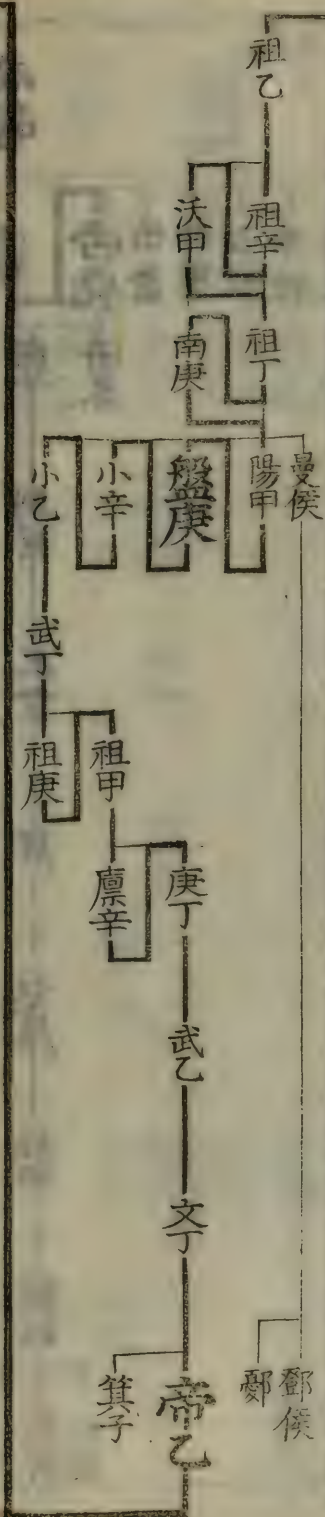 祖乙
祖辛
沃甲
祖丁
南庚
曼侯
陽甲
盤庚
小辛
小乙
武丁
祖甲
祖庚
庚丁
廪辛
武乙
文丁
鄧侯
鄾
帝乙
箕子